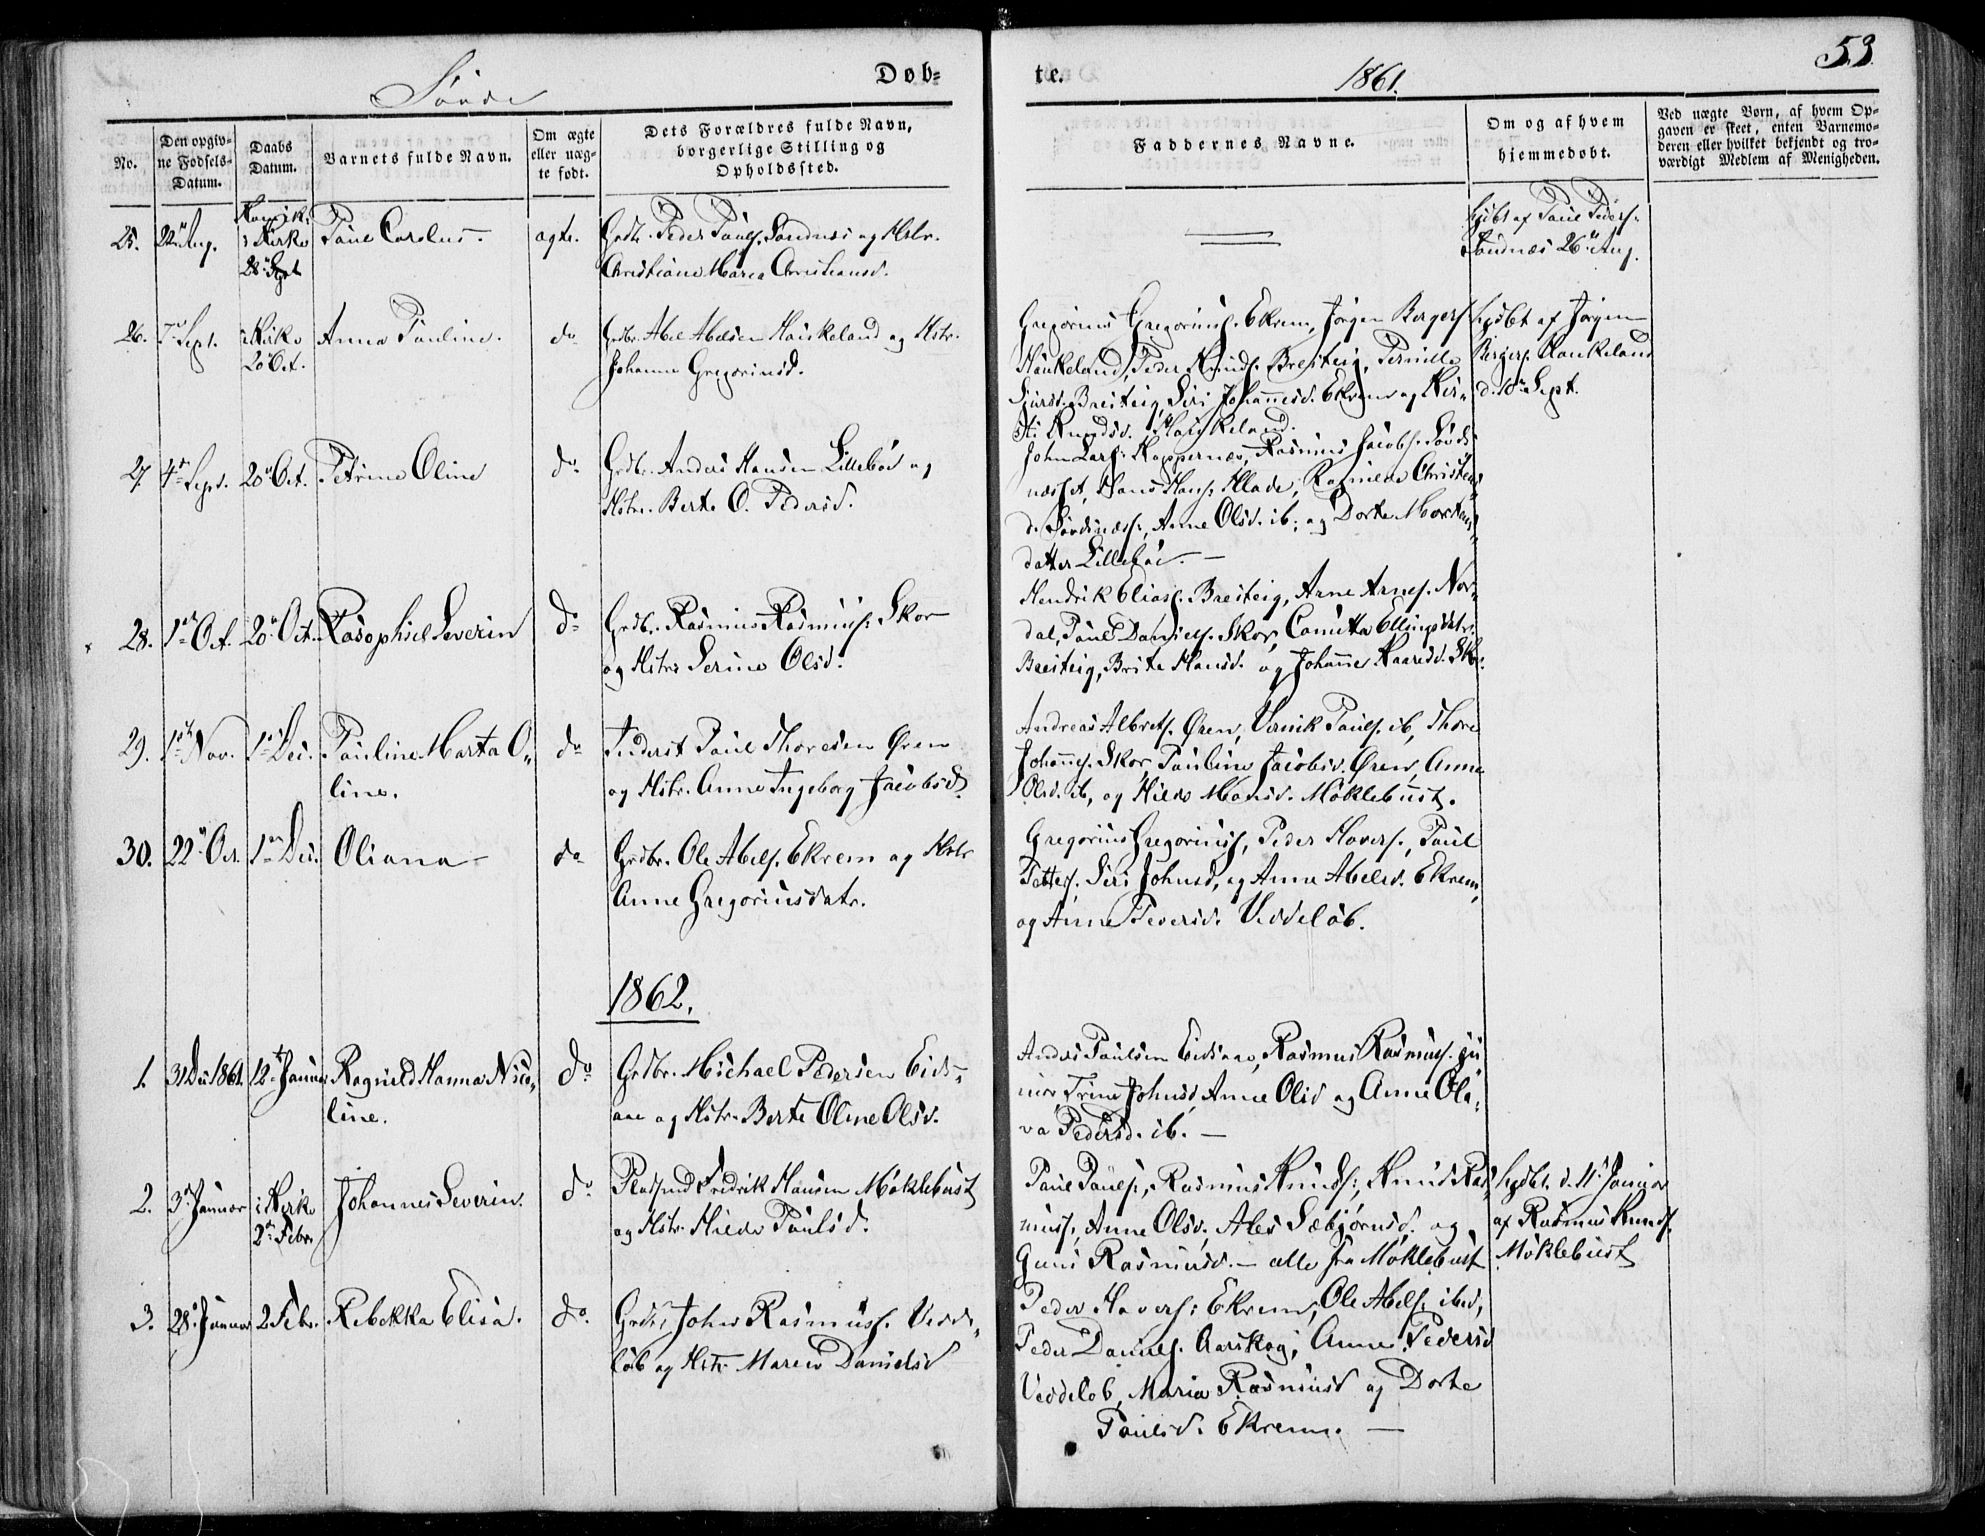 Døb-
te.
1861.
53.
No.
Den opgiv-
ne Fødsels-
Datum.
Daabs
Datum.
Barnets fulde Navn.
Om ægte
eller uæg-
te født.
Dets Forældres fulde Navn,
borgerlige Stilling og
Opholdssted.
Faddernes Navne.
Om og af hvem
hjemmedøbt.
Ved uægte Børn, af hvem Op-
gaven er skeet, enten Barnemo-
deren eller hvilket bekjendt og tro-
værdigt Medlem af Menigheden.
25.
22 Aug.
i Kirke
28 Sept
Paul Carolus.
ægte.
Peder Pauls. Sandnæs og Hstr.
Christiane Maria Christiansd.
hjdbt af Paul Peders.
Sandnæs 26 Aug.
26.
7 Sept.
i Kirke
20 Oct.
Anna Pauline.
do
Grdbr. Abel Abelsen Haukeland og Hstr.
Johanne Gregoriusd.
Gregorius Gregoriuss. Ekrem, Jørgen Bergers
Haukeland, Peder Knuds. Breiteig, Pernille
Sjursd. Breiteig, Siri Johannesd. Ekrem og Kir-
sti Knudsd. Haukeland.
hjdbt af Jørgen
Bergers. Haukeland
d. 10 Sept.
27
4 Sept.
20 Oct.
Petrine Oline
do
Grdbr. Anders Hansen Lillebø og
Hstr. Berte O. Pedersd.
John Lars. Koppernæs, Rasmus Jacobs. Søvds-
næsset, Hans Hans. Hlade, Rasmine Christens
d. Søvdsnæss., Anne Olsd. ib. og Dorte Mortens-
datter Lillebø. —
28.
1 Oct.
20 Oct.
Rasophiel Severin
do
Grdbr. Rasmus Rasmuss. Skor
og Hstr. Serine Olsd.
Hendrik Elias. Breiteig, Arne Arnes. Nor-
dal, Paul Daniels. Skor, Canutta Ellingsdatr.
Breiteig, Brite Hansd. og Johanne Kaaresd. Skor.
29.
1 Nov.
1 Dec.
Pauline Marta O-
line.
do
Inderst Paul Thoresen Øren
og Hstr. Anne Ingeborg Jacobsd.
Andreas Albrets. Øren, Pauls. ib, Thore
Johannes. Skor, Pauline Jacobsd. Øren, Anne
Olsd. ib, og Hilde Monsd. Møklebust.
30.
22 Oct.
1 Dec.
Oliana —
do
Grdbr. Ole Abels. Ekrem og Hstr
Anne Gregoriusdatr.
Gregorius Gregoriuss, Peder Hovers., Paul
Petters. Siri Johnsd, og Anne Abelsd. Ekrem,
og Anne Pedersd. Veddeløb.
1862.
1.
31 Dec 1861.
12 Januar
Ragnild Hanna Nico-
line.
do
Grdbr. Michael Pedersen Eids-
aae og Hstr. Berte Oline Olsd.
Anders Paulsen Eidsaae, Rasmus Rasmuss. ju
nior Trine Johnsd, Anne Olsd og Anne Ola-
va Pedersd. ib. —
2.
3 Januar
i Kirke
2 Febr.
Johannes Severin.
do
Pladsmd Fredrik Hansen Møklebust
og Hstr. Hilde Paulsd.
Paul Pauls., Rasmus Knuds., Knud Ras-
muss., Anne Olsd., Ales Sæbjørnsd. og
Guni Rasmusd. — alle fra Møklebust
hjdbt. d. 11 Januar
af Rasmus Knuds.
Møklebust
3.
28 Januar
2 Febr.
Rebekka Elisa.
do.
Grdbr John Rasmuss. Vedde-
løb og Hstr Maren Danielsd
Peder Hovers. Ekrem, Ole Abels. ibid,
Peder Daniels. Aarskog, Anne Pedersd
Veddeløb, Maria Rasmusd og Dorte
Paulsd. Ekrem. —